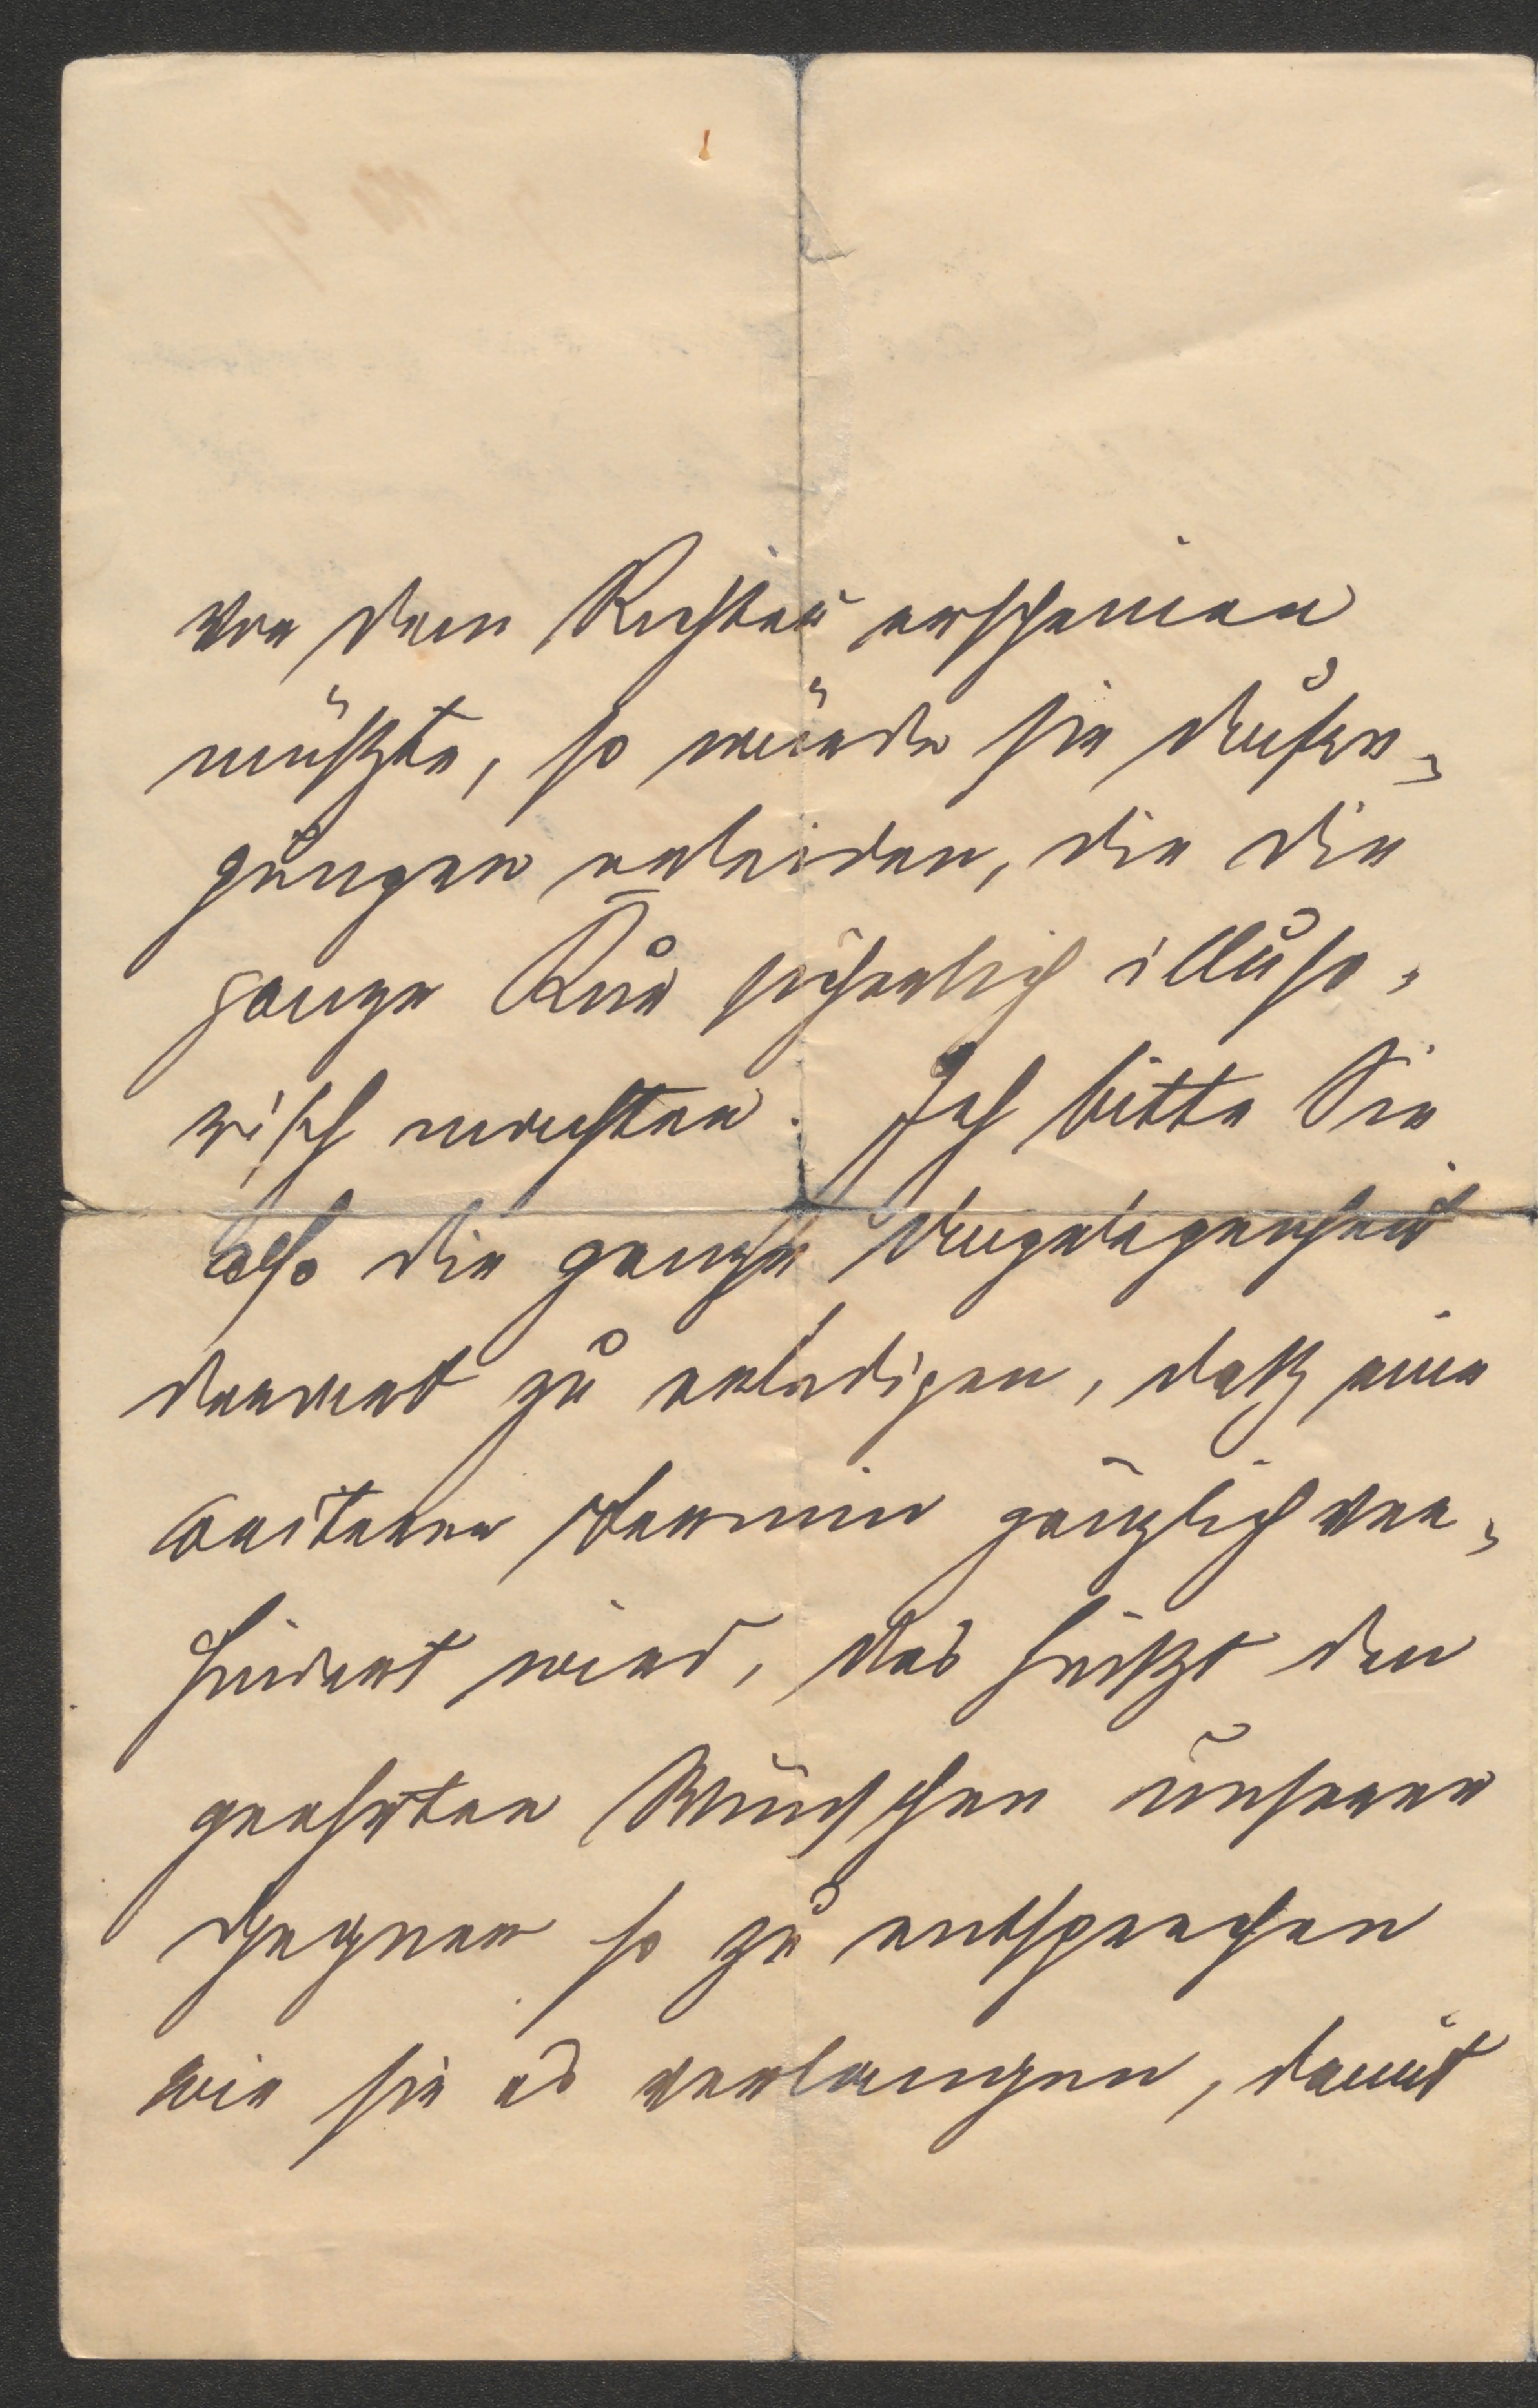 vor dem Richter erscheinen
müßte, so würde sie Aufre¬
gungen erleiden, die die
ganze Kur sicherlich illuso¬
risch machten. Ich bitte Sie
also die ganze Angelegenheit
derart zu erledigen, daß eine
weiterer Termin gänzlich ver¬
hindert wird, das heißt den
geehrten Wünschen unserer
Gegner so zu entsprechen
wie sie es verlangen, damit